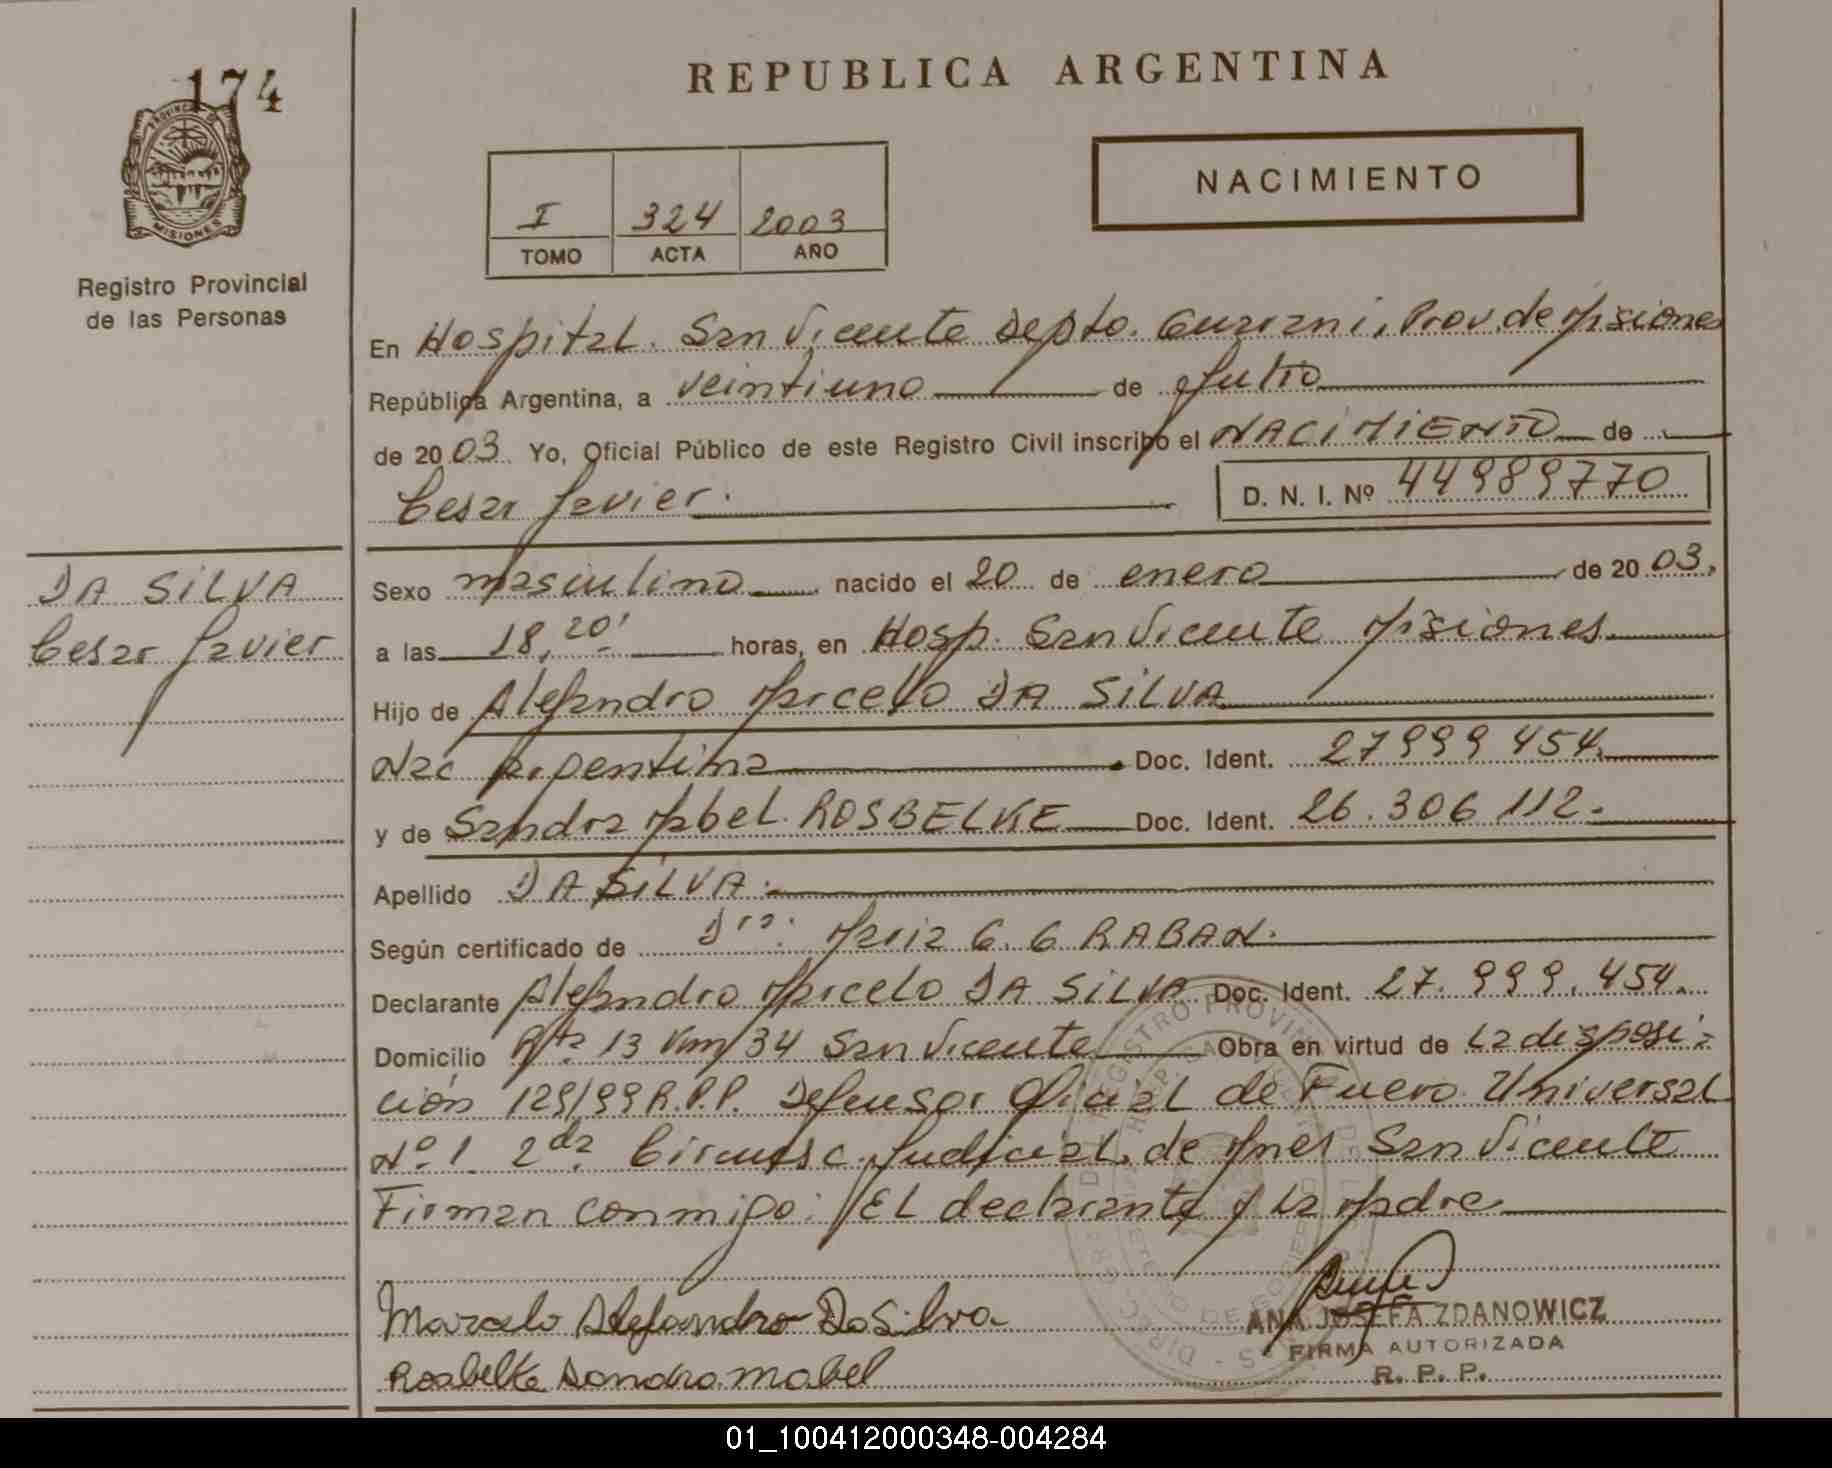 174
PROVINCIA DE
MISIONES
Registro Provincial
de las Personas
DA SILVA
Cesar Javier
REPUBLICA ARGENTINA
NACIMIENTO
I 324 2003
TOMO ACTA AÑO
En Hospital. San Vicente Depto. Guarani, Prov. de Misiones
República Argentina, a veintiuno de Julio
de 2003 Yo, Oficial Público de este Registro Civil inscribo el NACIMIENTO de
Cesar Javier. D. N. I. Nº 44989770
Sexo masculino nacido el 20 de enero de 2003,
a las 18,20' horas, en Hosp. San Vicente Misiones
Hijo de Alejandro Marcelo DA SILVA
Nac Argentina Doc. Ident. 27999454.
y de Sandra Mabel ROSBELKE Doc. Ident. 26.306 112.
Apellido DA SILVA.
Según certificado de Dra: Maria G. G RABAN.
Declarante Alejandro Marcelo DA SILVA Doc. Ident. 27.999.454.
Domicilio Rta 13 Km 34 San Vicente Obra en virtud de La disposi-
ción 129/99 R.P.P. Defensor Oficial de Fuero Universal
Nº 1 2da Circunsc. Judicial. de Mnes San Vicente
Firman conmigo: EL declarante y La Madre
Marcelo Alejandro Da Silva
Rosbelke Sandra mabel
ANA JOSEFA ZDANOWICZ
FIRMA AUTORIZADA
R. P. P.
01_100412000348-004284